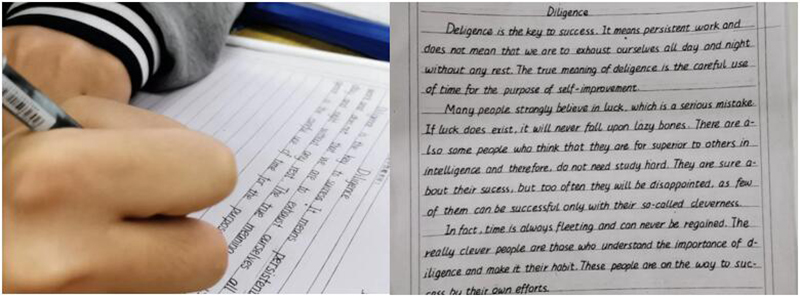 Diligence
Diligence is the key to success. It means persistent
work and does not mean that we are to exhaust ourselves all
day and night without any rest. The true meaning
of time for the purpos
Diligence
Deligence is the key to success. It means persistent work and
does not mean that we are to exhaust ourselves all day and night
without any rest. The true meaning of deligence is the careful use
of time for the purpose of self-improvement.
Many people strongly believe in luck, which is a serious mistake
If luck does exist, it will never fall upon lazy bones. There are a-
lso some people who think that they are far superior to others in
intelligence and therefore, do not need study hard. They are sure a-
bout their sucess, but too often they will be disappointed, as few
of them can be successful only with their so-called cleverness.
In fact, time is always fleeting and can never be regained. The
really clever people are those who understand the importance of d-
iligence and make it their habit. These people are on the way to suc-
cess by their own efforts.